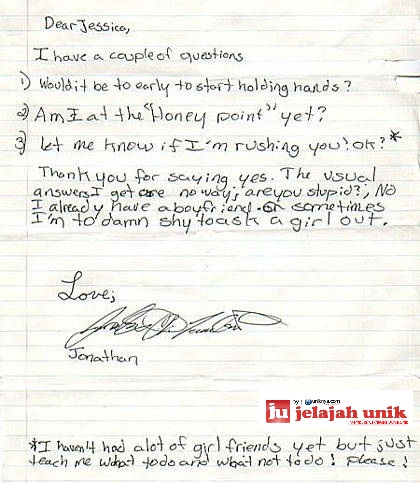 Dear Jessica,
I have a couple of questions
1) Would it be to early to start holding hands?
2) Am I at the "Honey point" yet?
3) Let me know if I'm rushing you! ok?*
Thank you for saying yes. The usual
answers I get are no way; are you stupid?; NO
I already have a boyfriend. Or sometimes
I'm to damn shy to ask a girl out.
Love;
Jonathan
iu jelajah unik
*I haven't had alot of girl friends yet but just
teach me what to do and what not to do! Please!